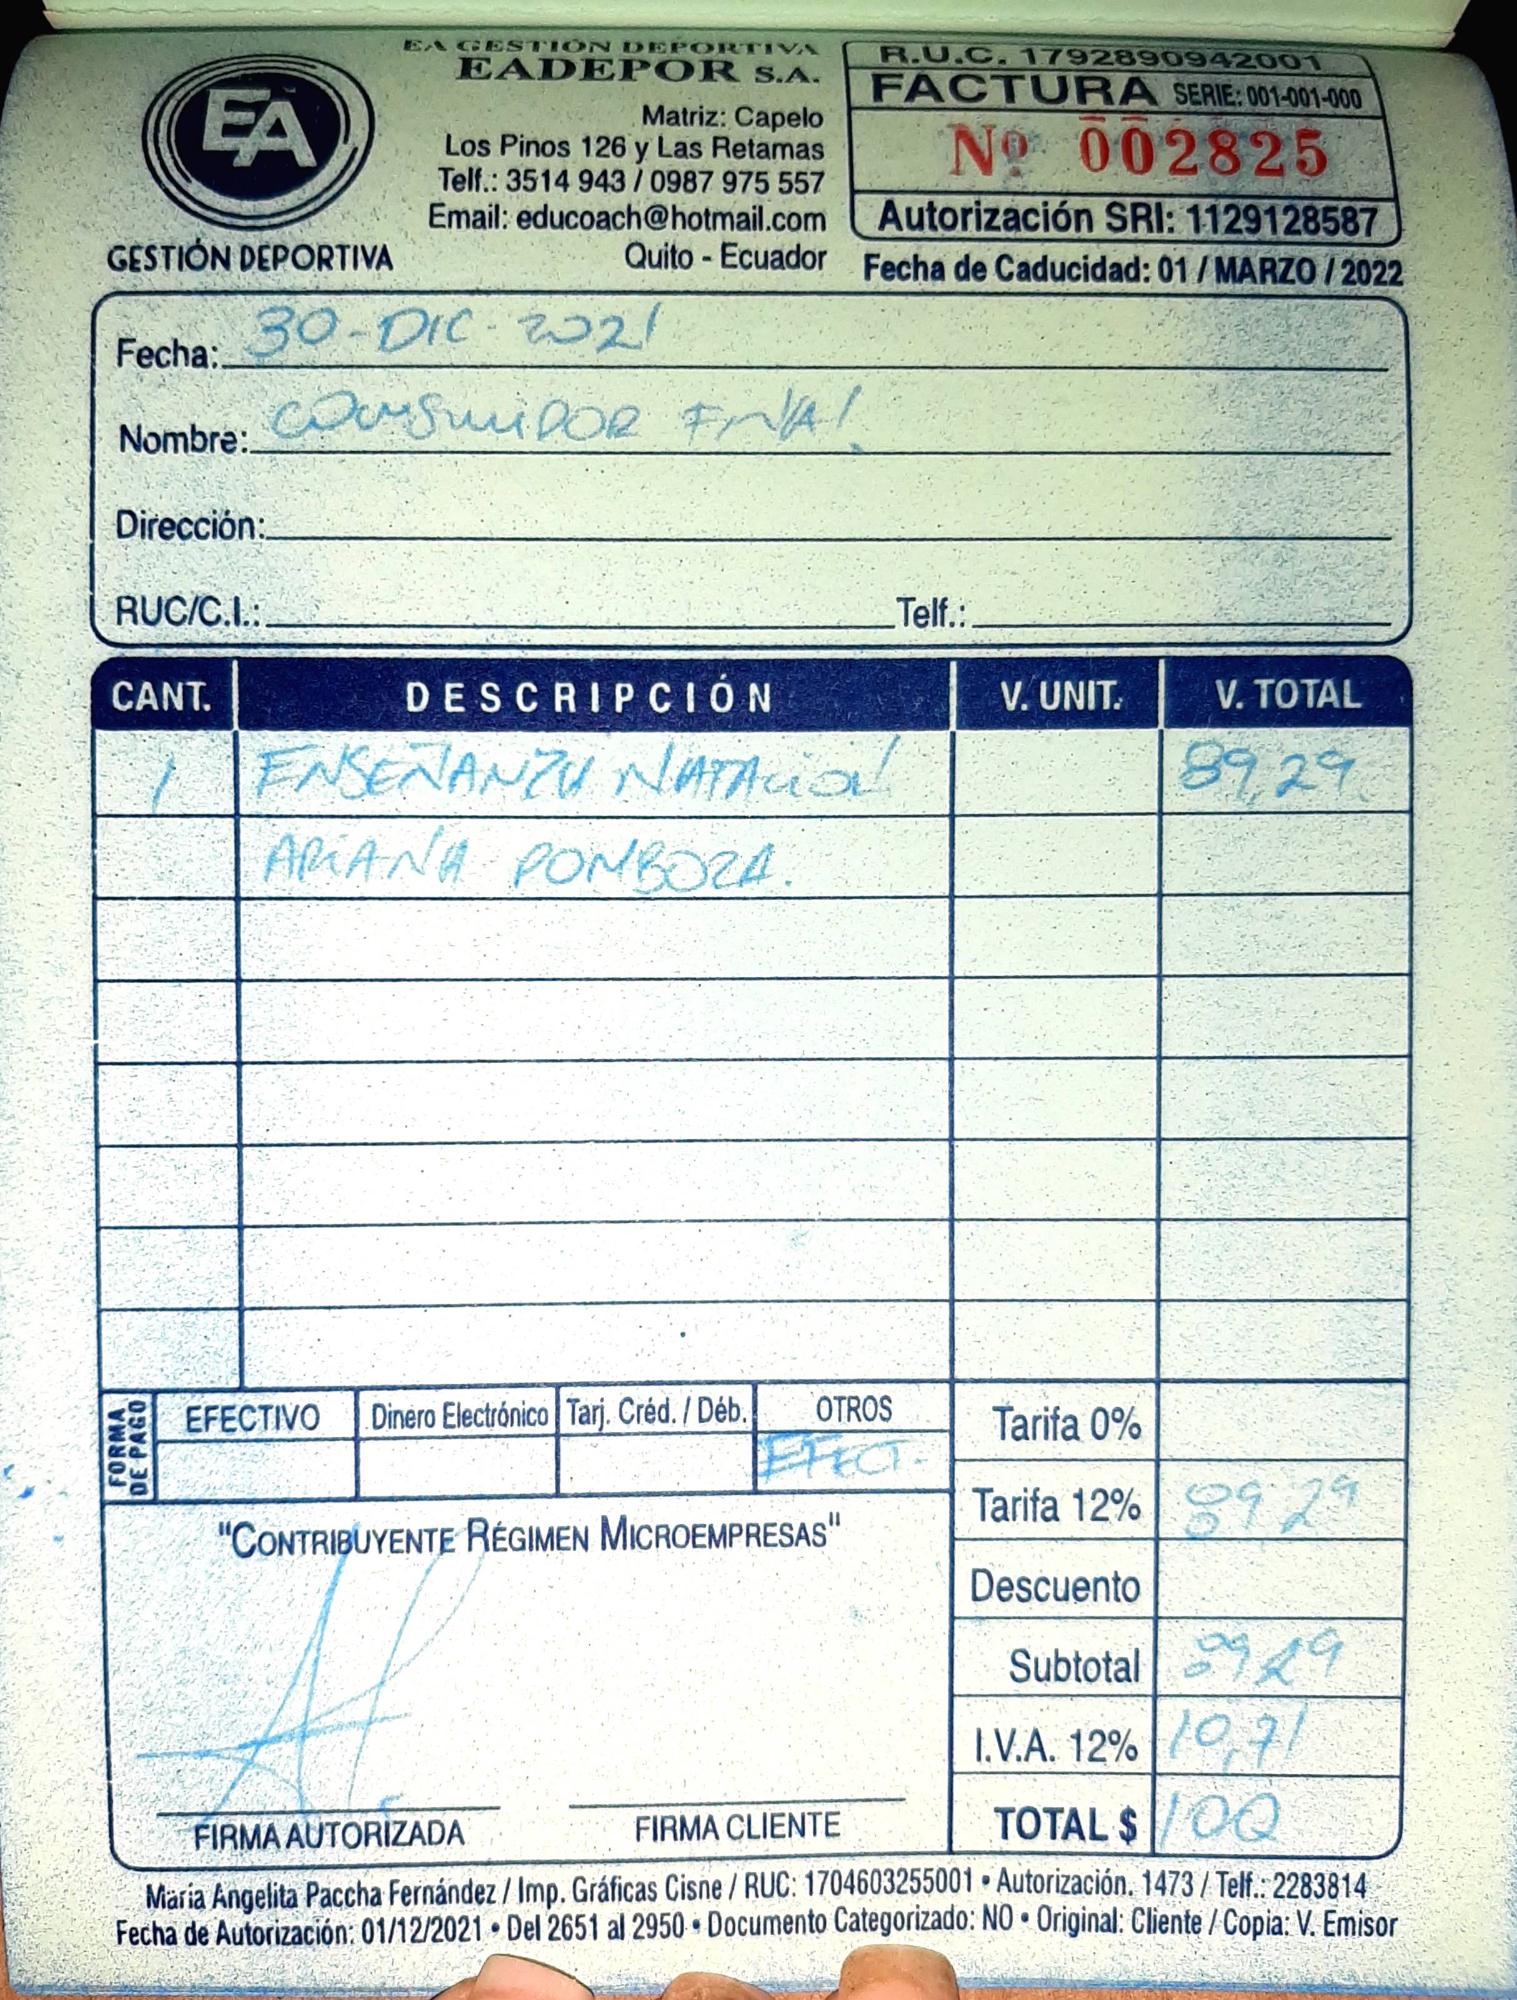 EA GESTIÓN DEPORTIVA
EADEPOR S.A.
EA
GESTIÓN DEPORTIVA
Matriz: Capelo
Los Pinos 126 y Las Retamas
Telf.: 3514 943 / 0987 975 557
Email: educoach@hotmail.com
Quito - Ecuador
R.U.C. 1792890942001
FACTURA SERIE: 001-001-000
Nº 002825
Autorización SRI: 1129128587
Fecha de Caducidad: 01 / MARZO / 2022
Fecha: 30-DIC-2021
Nombre: CONSUMIDOR FINAL
Dirección:
RUC/C.I.: Telf.:
CANT. DESCRIPCIÓN V. UNIT. V. TOTAL
1 ENSEÑANZA NATACION 89,29
ARIANA POMBOZA.
FORMA DE PAGO
EFECTIVO Dinero Electrónico Tarj. Créd. / Déb. OTROS
EFECT.
Tarifa 0%
Tarifa 12% 89 29
Descuento
Subtotal 89 29
I.V.A. 12% 10,71
TOTAL $ 100
"CONTRIBUYENTE RÉGIMEN MICROEMPRESAS"
FIRMA AUTORIZADA FIRMA CLIENTE
María Angelita Paccha Fernández / Imp. Gráficas Cisne / RUC: 1704603255001 • Autorización. 1473 / Telf.: 2283814
Fecha de Autorización: 01/12/2021 • Del 2651 al 2950 • Documento Categorizado: NO • Original: Cliente / Copia: V. Emisor